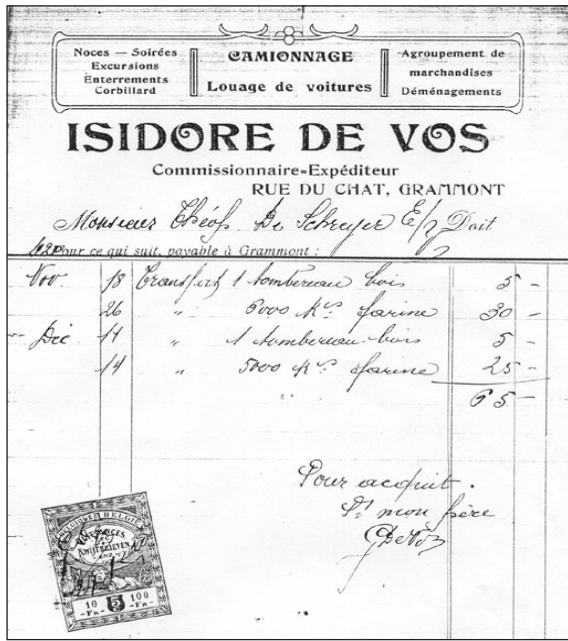 Noces — Soirées
Excursions
Enterrements
Corbillard
CAMIONNAGE
Louage de voitures
Agroupement de
marchandises
Déménagements
ISIDORE DE VOS
Commissionnaire-Expéditeur
RUE DU CHAT, GRAMMONT
Monsieur Théop. De Schryver E/V Doit
Pour ce qui suit, payable à Grammont :
Nov 18 Transfert 1 tombereau bois 5 -
26 " 6000 Ks farine 30 -
Dec 11 " 1 tombereau bois 5 -
14 " 5000 Ks farine 25 -
65 -
Pour acquit.
Pr mon frère
De Vos
BELGIQUE BELGIË
QUITTANCES
KWIJTBRIEVEN
10 5 100
-Fr- -Fr-